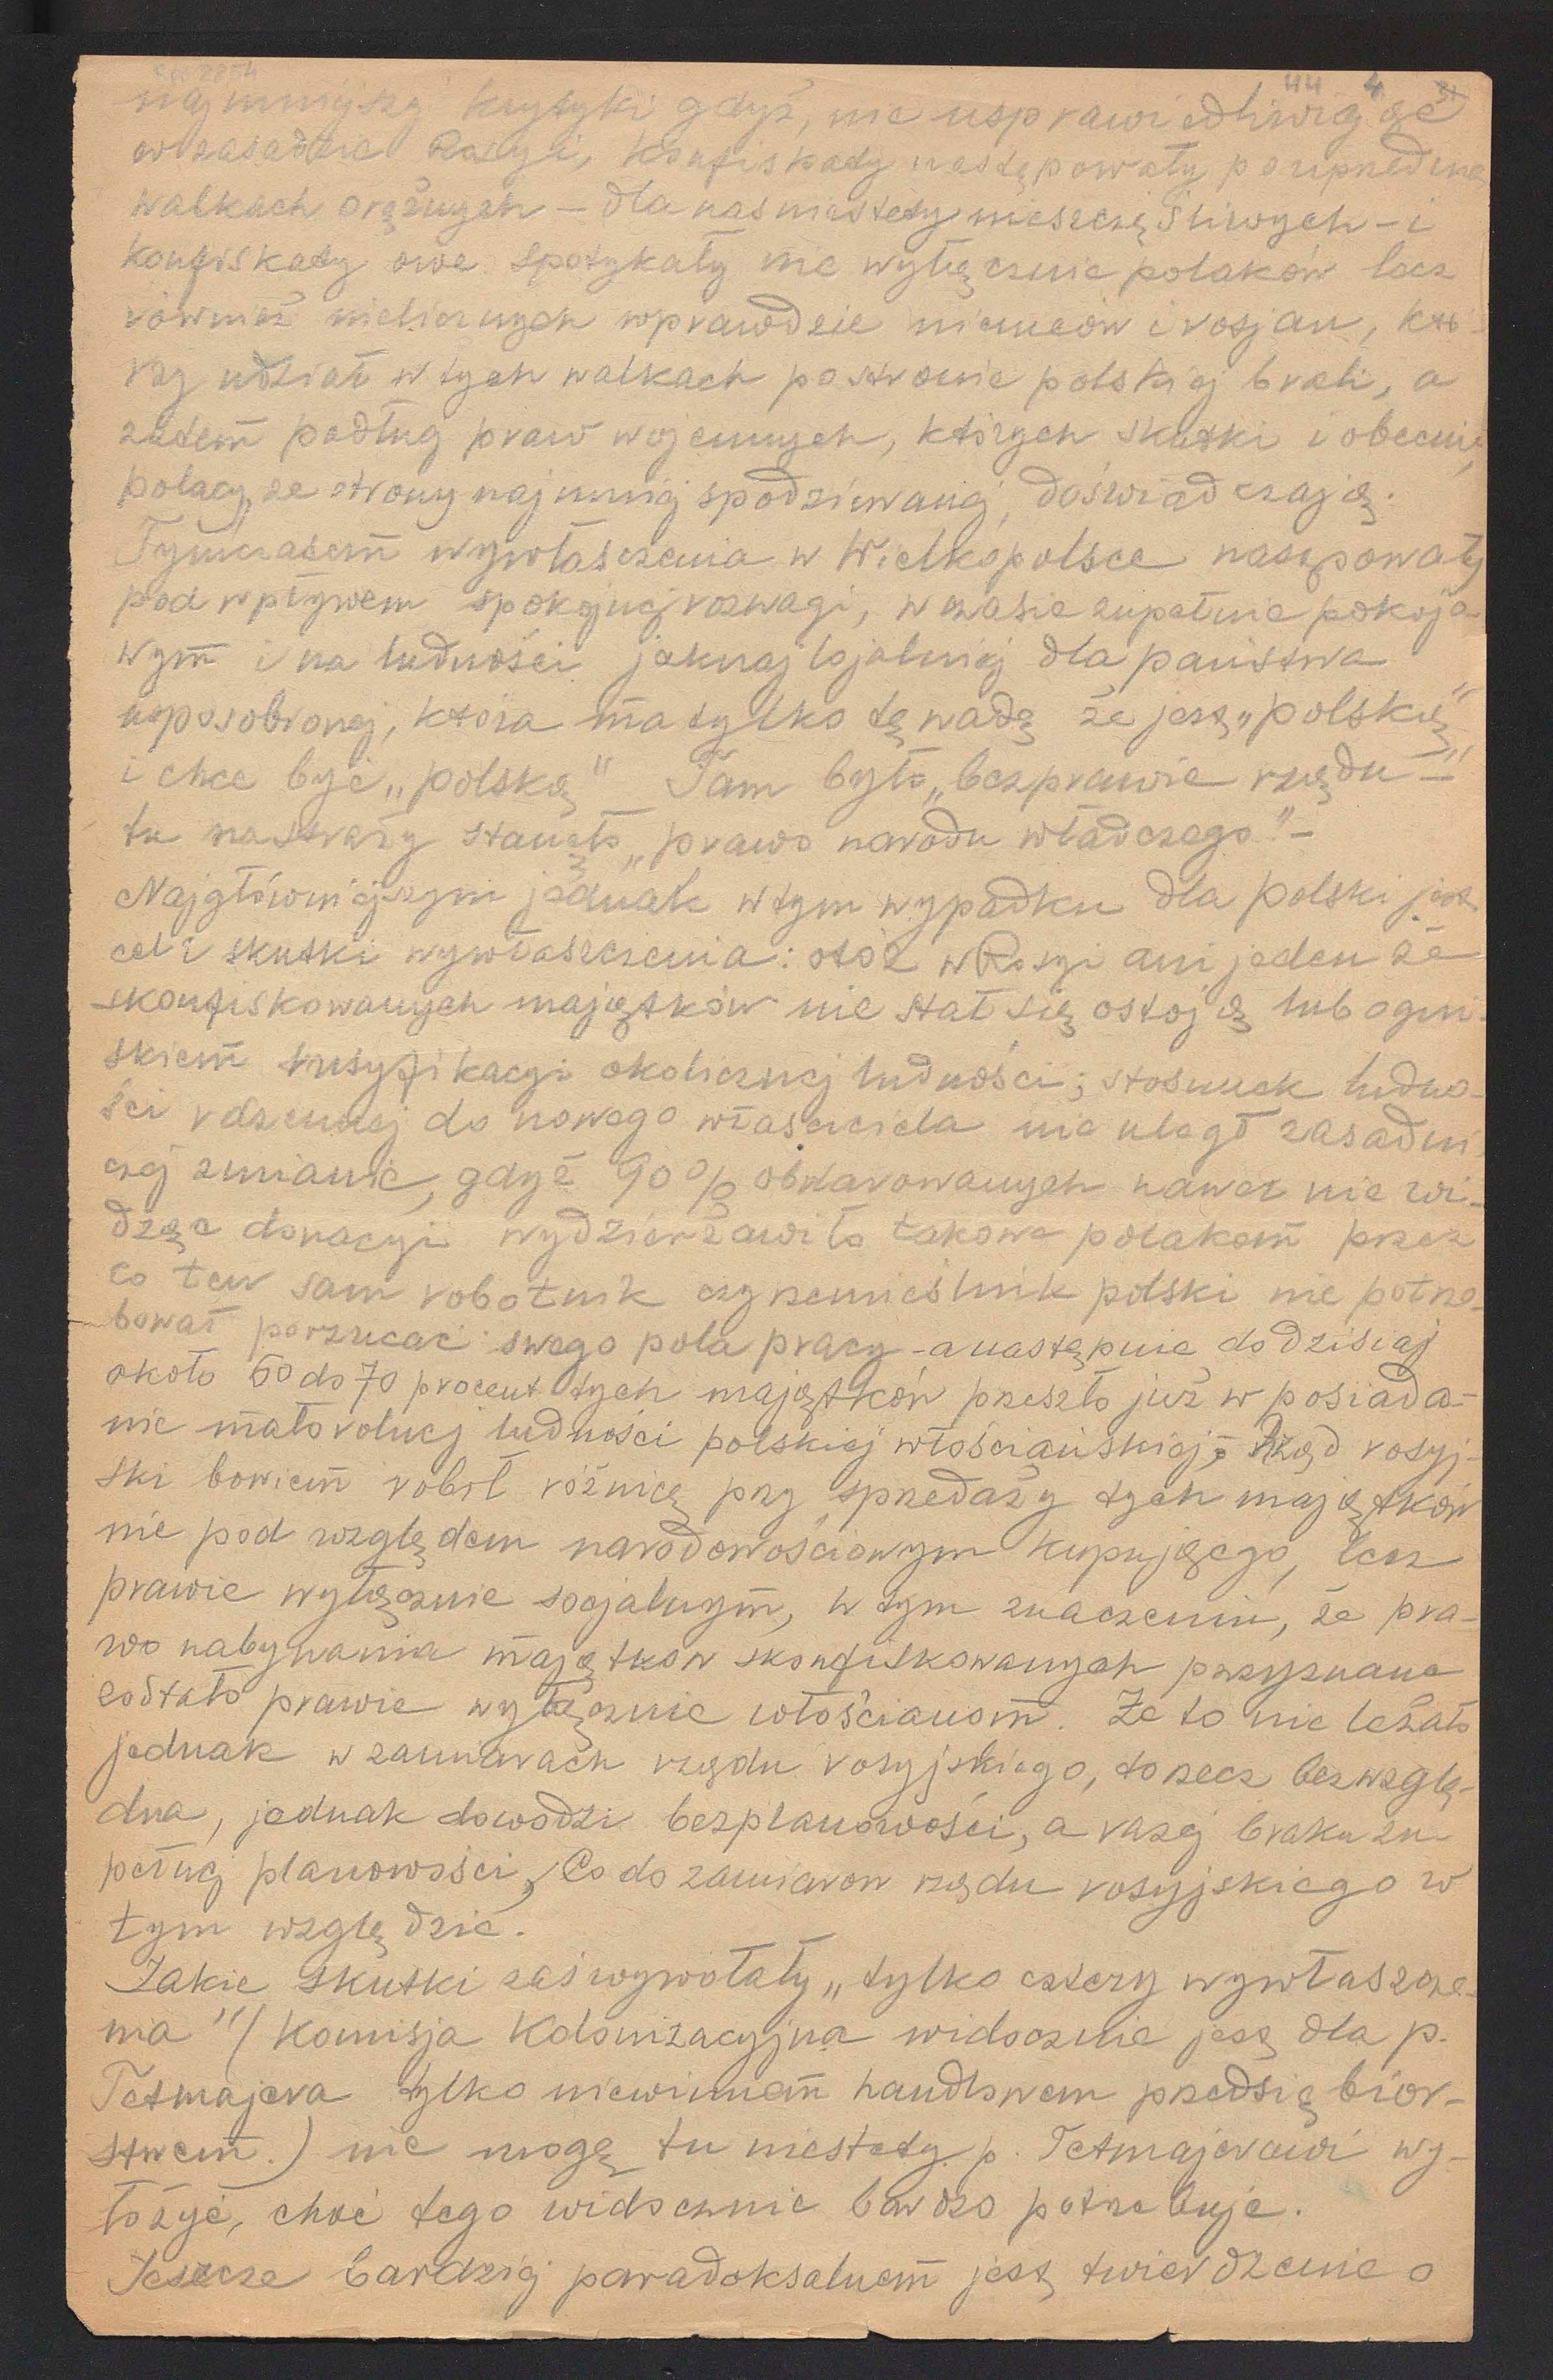 44 4 31
najmniejszej krytyki gdyż, nie usprawiedliwiając
w zasadzie Rosyi, konfiskady następowały po uprzednich
walkach orężnych – dla nas niestety nieszczęśliwych – i
konfiskady owe spotykały nie wyłącznie polaków lecz
również nielicznych wprawdzie niemców i rosjan, któ-
rzy udział w tych walkach po stronie polskiej brali, a
zatem podług praw wojennych, których skutki i obecnie,
polacy, ze strony najmniej spodziewanej, doświadczają.
Tymczasem wywłaszczenia w Wielkopolsce następowały
pod wpływem spokojnej rozwagi, w czasie zupełnie pokojo-
wym i na ludności jaknajlojalniej dla państwa
usposobionej, która ma tylko tę wadę że jest „polską"
i chce być „polską" Tam było „bezprawie rządu" –
tu na straży stanęło „prawo narodu władczego." –
Najgłówniejszym jednak w tym wypadku dla polski jest
cel i skutki wywłaszczenia: otóż w Rosyi ani jeden ze
skonfiskowanych majątków nie stał się ostoją lub ogni-
skiem rusyfikacyi okolicznej ludności; stosunek ludno-
ści rdzennej do nowego właściciela nie uległ zasadni-
czej zmianie, gdyż 90% obdarowanych nawet nie wi-
dząc donacyi wydzierżawiło takowe polakom przez
co ten sam robotnik czy rzemieślnik polski nie potrze-
bował porzucać swego pola pracy – a następnie do dzisiaj
około 60 do 70 procent tych majątków przeszło już w posiada-
nie małorolnej ludności polskiej włościańskiej; Rząd rosyj-
ski bowiem robił różnicę przy sprzedaży tych majątków
nie pod względem narodowościowym kupującego, lecz
prawie wyłącznie socjalnym, w tym znaczeniu, że pra-
wo nabywania majątków skonfiskowanych przyznane
zostało prawie wyłącznie włościanom. Że to nie leżało
jednak w zamiarach rządu rosyjskiego, to rzecz bezwzglę-
dna, jednak dowodzi bezplanowości, a raczej braku zu-
pełnej planowości, Co do zamiarow rządu rosyjskiego w
tym względzie.
Jakie skutki zaś wywołały „tylko cztery wywłaszcze-
nia" (Komisja Kolonizacyjna widocznie jest dla p.
Tetmajera tylko niewinnem handlowem przedsiębior-
stwem.) nie mogę tu niestety p. Tetmajerowi wy-
łożyć, choć tego widocznie bardzo potrzebuje.
Jeszcze bardziej paradoksalnem jest twierdzenie o